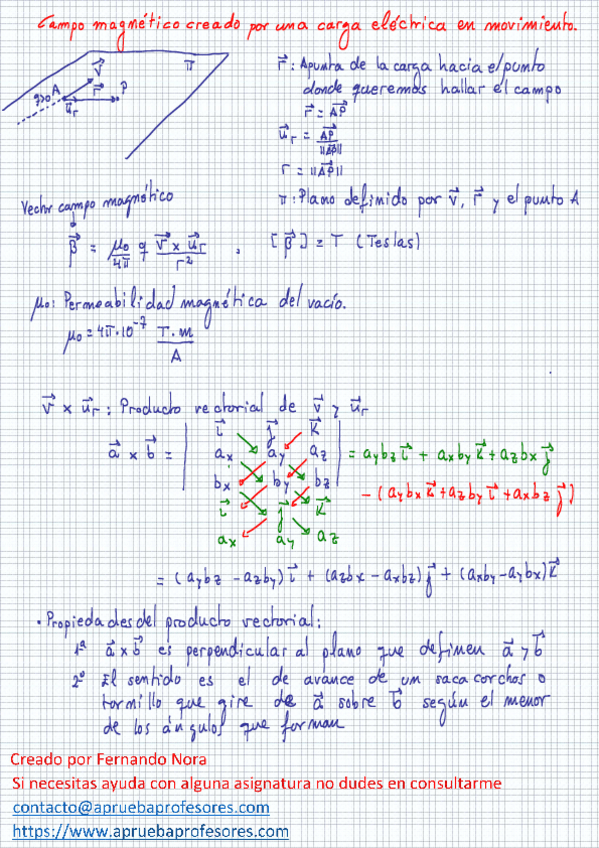 Campo magnético creado por una carga eléctrica en movimiento.
π
v⃗
q>0 A r⃗ P
u⃗r
r⃗: Apunta de la carga hacia el punto
donde queremos hallar el campo
r⃗ = AP⃗
u⃗r = AP⃗ / ||AP⃗||
r = ||AP⃗||
π: Plano definido por v⃗, r⃗ y el punto A
Vector campo magnético
β⃗ = μ₀/4π q v⃗ x u⃗r / r² , [β⃗] = T (Teslas)
μ₀: Permeabilidad magnética del vacío.
μ₀ = 4π·10⁻⁷ T·m / A
v⃗ x u⃗r: Producto vectorial de v⃗ y u⃗r
i⃗ j⃗ k⃗
a⃗ x b⃗ = | ax ay az | = aybz i⃗ + axby k⃗ + azbx j⃗
bx by bz
i⃗ j⃗ k⃗ - (aybx k⃗ + azby i⃗ + axbz j⃗)
ax ay az
= (aybz - azby) i⃗ + (azbx - axbz) j⃗ + (axby - aybx) k⃗
• Propiedades del producto vectorial:
1ª a⃗ x b⃗ es perpendicular al plano que definen a⃗ y b⃗
2º El sentido es el de avance de un sacacorchos o
tornillo que gire de a⃗ sobre b⃗ según el menor
de los ángulos que forman
Creado por Fernando Nora
Si necesitas ayuda con alguna asignatura no dudes en consultarme
contacto@apruebaprofesores.com
https://www.apruebaprofesores.com